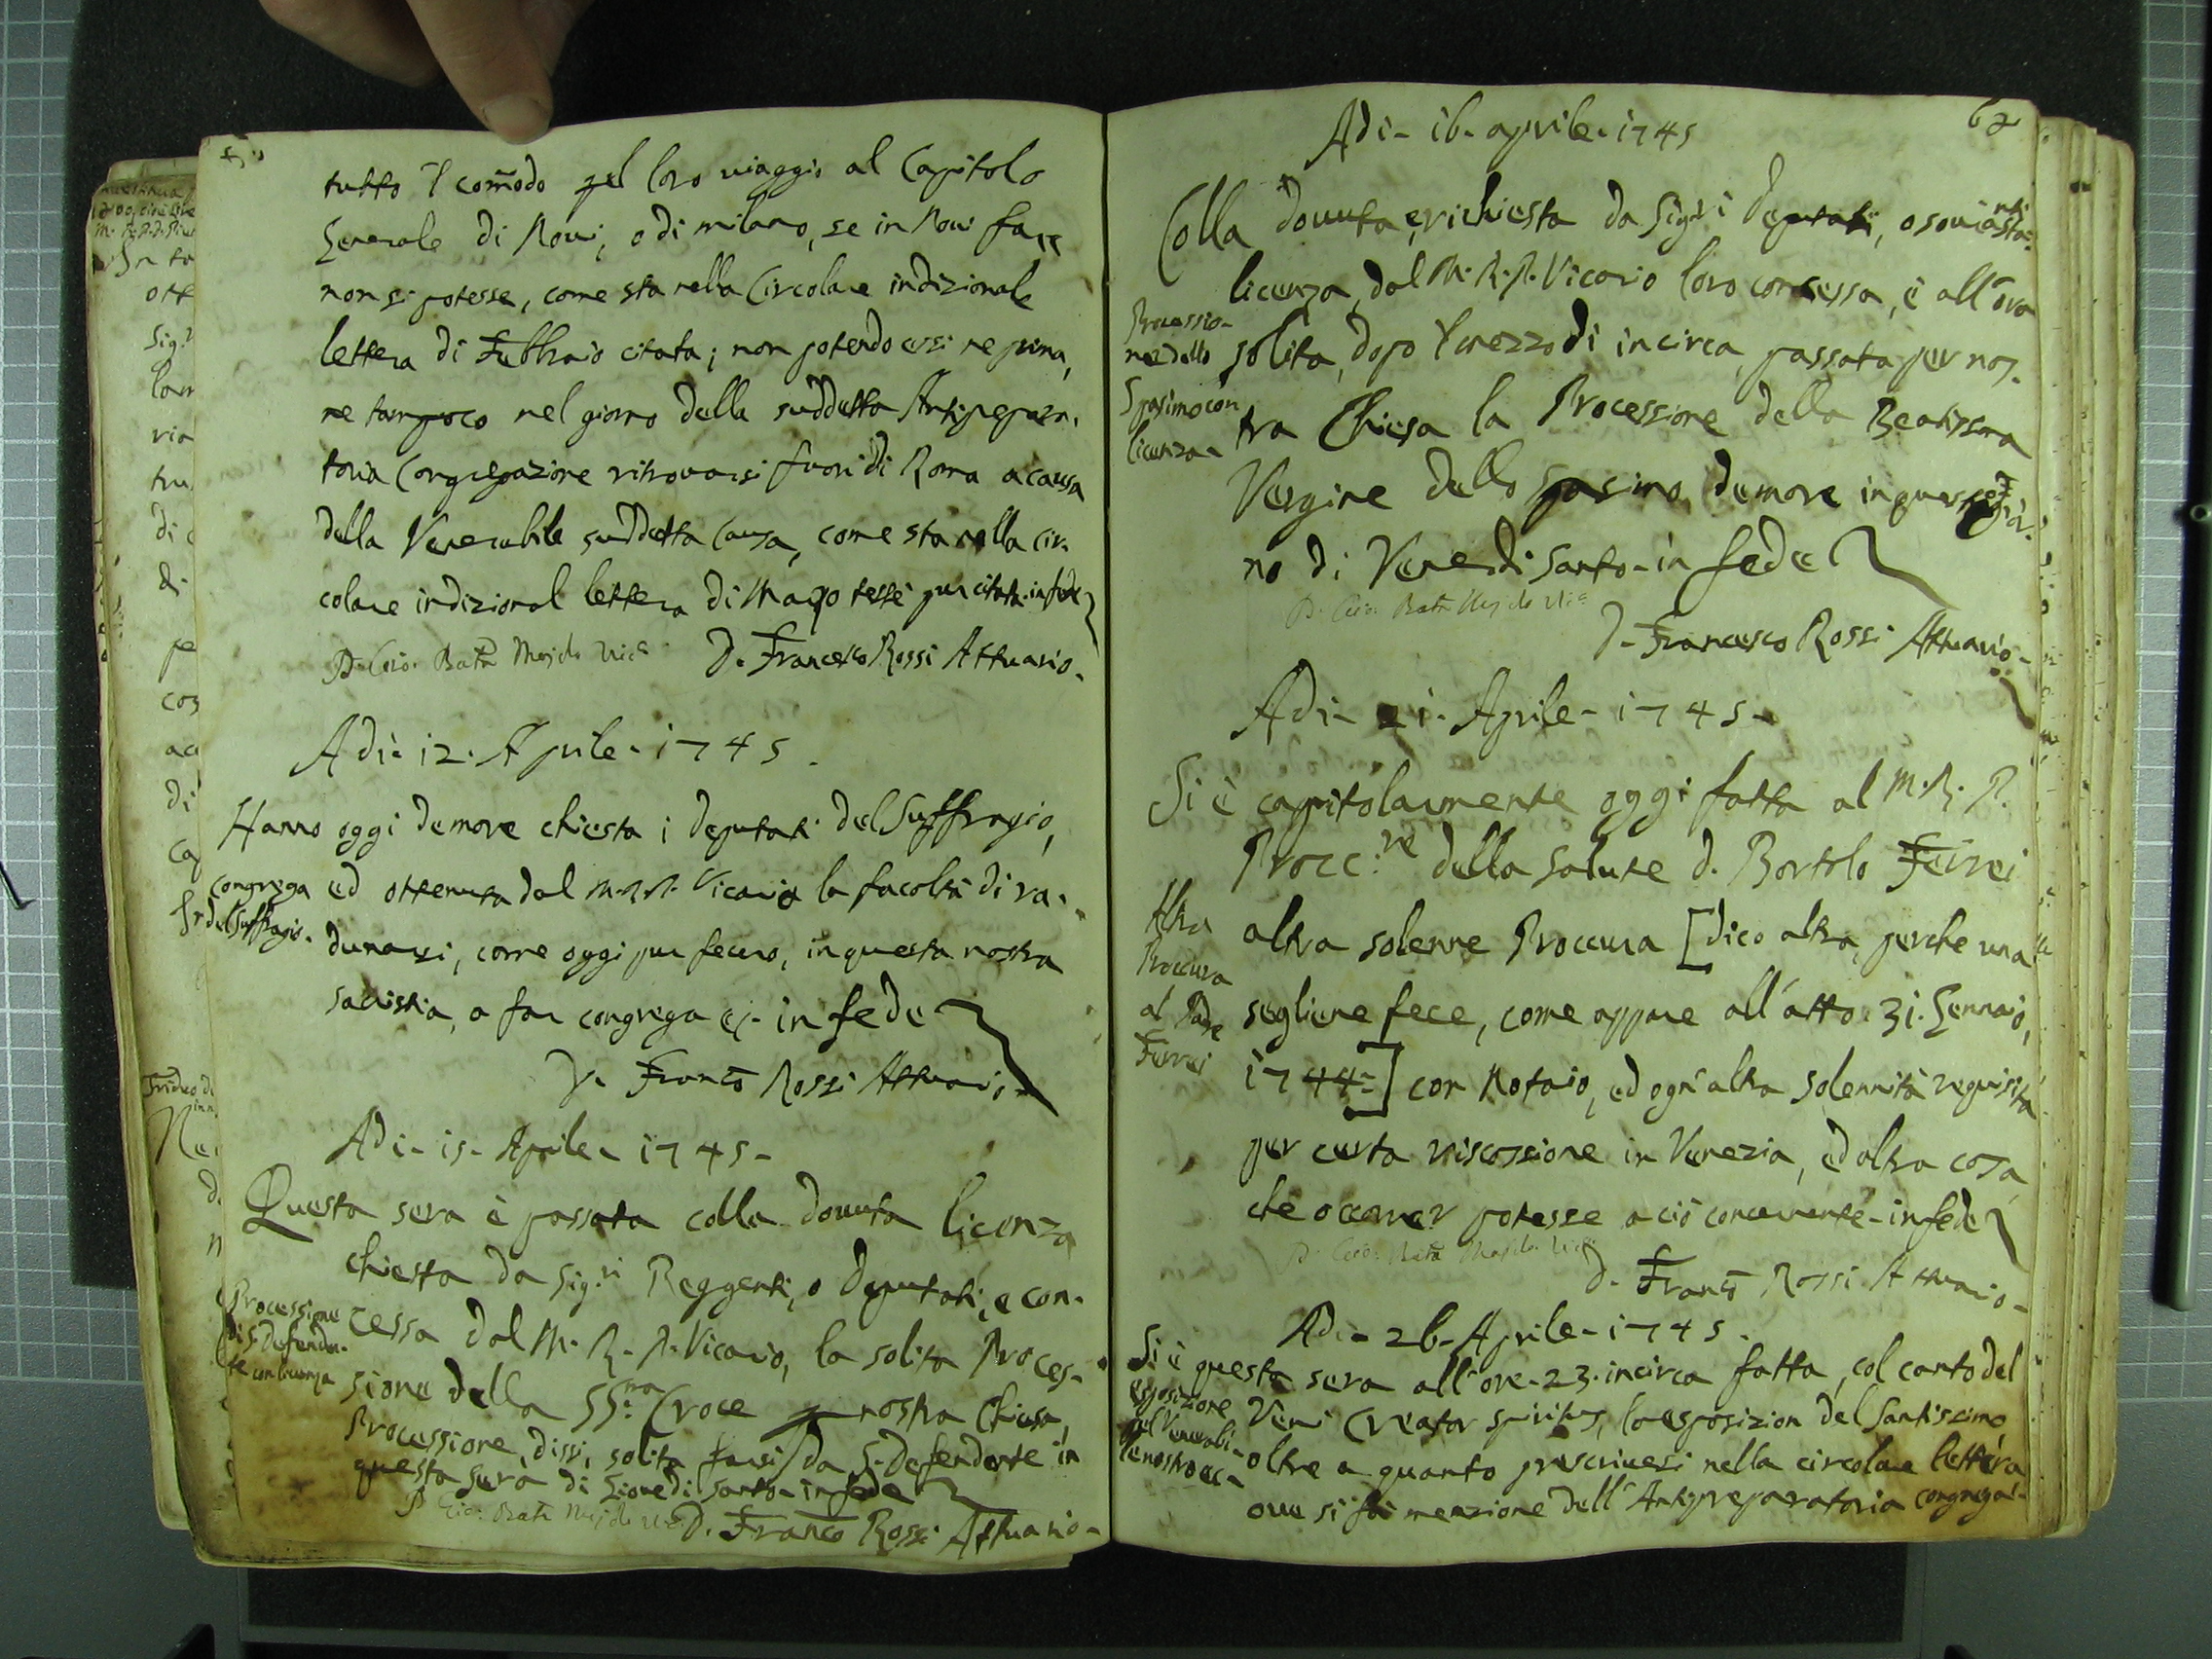 tutto 'l com̃odo pel loro viaggio al Capitolo
Generale di Novi, o di milano, se in Novi farsi
non si potesse, come sta nella Circolare indizionale
lettera di Febbraio citata; non potendo essi ne prima,
ne tampoco nel giorno della suddetta Antiprepara-
toria Congregazione ritrovarsi fuori di Roma a causa
della Venerabile suddetta Causa, come sta nella cir-
colare indizional lettera di Marzo testè pur citata. in fede
D. Gio: Batta Vic.o D. Francesco Rossi Attuario.
Adi- 12. Aprile- 1745.
Hanno oggi de more chiesta i deputati del Suffragio,
congrega
del Suffragio.
ed ottenuta dal M.R.P. Vicario la facoltà di ra-
dunarsi, come oggi pur fecero, in questa nostra
sacristia, a far congrega in fede
D. Franco Rossi Attuario-
Adi- 15- Aprile- 1745-
Questa sera è passata colla dovuta licenza
chiesta da Sig.ri Reggenti, o deputati, e con-
Processione
di S. Defenden-
te con licenza
cessa dal M. R. P. Vicario, la solita Proces-
sione della SS.ma Croce nostra Chiesa,
Processione, dissi, solita farsi da S. Defendente in
questa sera di Giovedi Santo- in fede
D. Gio: Batta D. Franco Rossi Attuario-
62
Adi- 16- aprile- 1745
Colla dovuta, e richiesta da Sig.ri deputati, o
licenza, dal M. R. P. Vicario loro concessa, è all'ora
Processio-
ne dello
Spasimo con
licenza-
solita, dopo 'l mezzo dì incirca, passata per nos-
tra Chiesa la Processione della Beatissima
Vergine dello Spasimo, de more in questo gior-
no di Venerdi Santo- in fede
D. Gio: Batta Vic.o
D. Francesco Rossi Attuario-
Adi- 21- Aprile- 1745-
Si è capitolarmente oggi fatta al M. R. P.
Procc.re della Salute d. Bortolo Ferrei
Altra
Proccura
al Padre
Ferrei
altra solenne Proccura [dico altra, perche una
segliene fece, come appare all'atto 31. Gennaio,
1744-] con Notaio, ed ogn'altra solennità requisita
per certa riscossione in Venezia, ed altra cosa,
che occorrer potesse a ciò concernente- in fede
D. Gio: Batta Vic.o
D. Franco Rossi Attuario-
Adi- 26- Aprile- 1745.
Si è questa sera all'ore- 23. incirca fatta, col canto del
esposizione
del Venerabi-
le nostro ec-
Veni Creator Spiritus, la esposizion del Santissimo,
oltre a quanto prescrivesi nella circolare lettera
ove si fà menzione dell'Antipreparatoria congregaz-